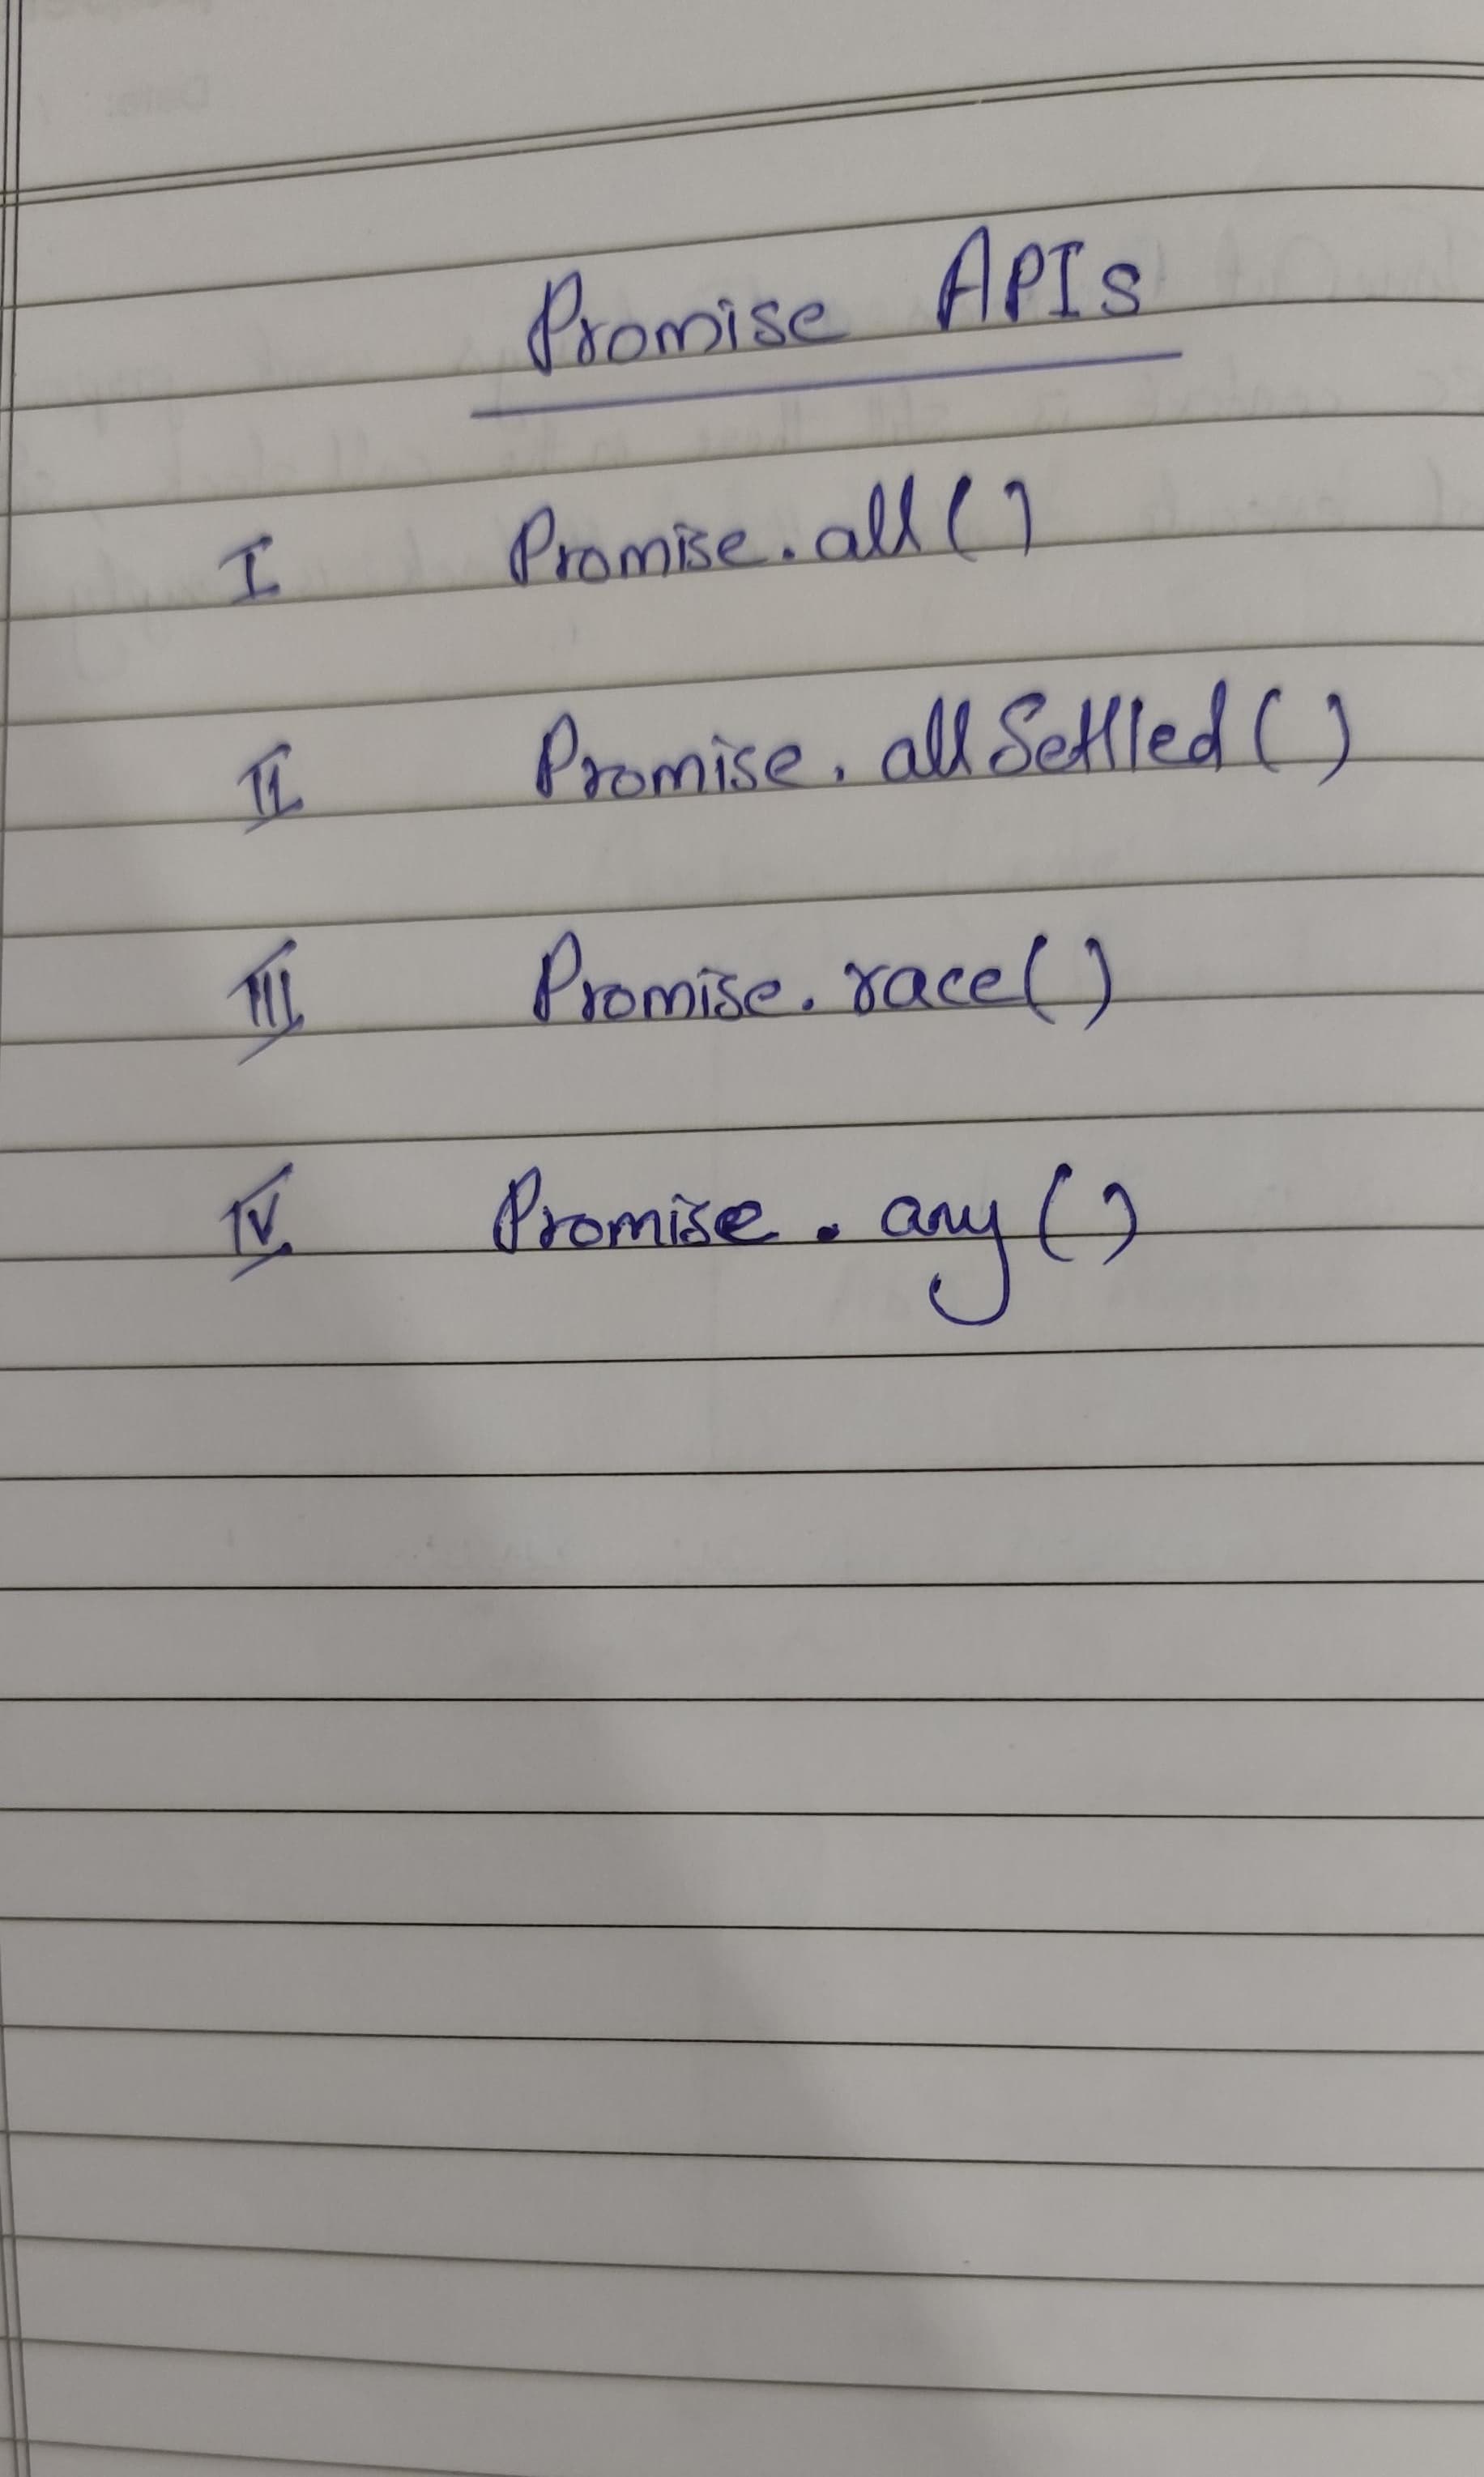 Promise APIs
I Promise.all()
II Promise.allSettled()
III Promise.race()
IV Promise.any()